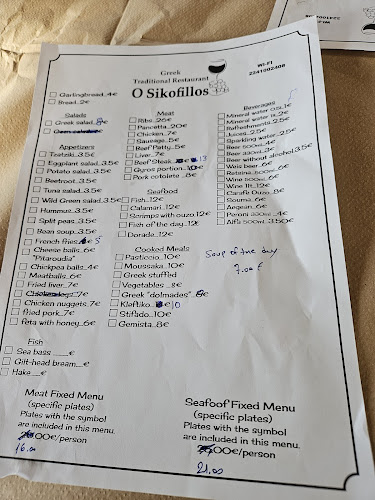 Greek
Traditional Restaurant
O Sikofillos
WI-FI
2241202408
Garlingbread..4€
Bread..2€
Salads
Greek salad..8€
Appetizers
Tzatziki..3.5€
Eggplant salad..3.5€
Potato salad..3.5€
Beetroot..3.5€
Tuna salad..3.5€
Wild Green salad..3.5€
Hummus..3.5€
Split peas..3.5€
Bean soup..3.5€
French fries 5
Cheese balls..6€
"Pitaroudia"
Chickpea balls..4€
Meatballs..6€
Fried liver..7€
Chicken nuggets..7€
fried pork..7€
feta with honey..6€
Fish
Sea bass ___€
Gilt-head bream__€
Hake__€
Meat
Ribs..25€
Pancetta..20€
Chicken..7€
Sausage..5€
Beef Patty..5€
Liver..7€
Beef Steak 13
Gyros portion..10€
Pork cotolete..8€
Seafood
Fish..12€
Calamari..12€
Scrimps with ouzo..12€
Fish of the day..12€
Dorade..12€
Cooked Meals
Pasticcio..10€
Moussaka..10€
Greek stuffed
Vegetables..8€
Greek "dolmades"..8€
Kleftiko 10
Stifado..10€
Gemista..8€
Beverages
Mineral water 0.5L..1€
Mineral water 1L..2€
Refreshments..2.5€
Juices..2.5€
Sparkling water..2.5€
Beer 500ml..4€
Beer 330ml..3€
Beer without alcohol..3.5€
Weis beer..6€
Retzina..500ml..6€
Wine 500ml..6€
Wine 1lt..12€
Caraffe Ouzo..8€
Souma..6€
Aegean..6€
Peroni 330ml..4€
Alfa 500ml..3.50€
Soup of the day
7.00 €
Meat Fixed Menu
(specific plates)
Plates with the symbol
are included in this menu.
00€/person
16.00
Seafoof Fixed Menu
(specific plates)
Plates with the symbol
are included in this menu.
00€/person
21.00